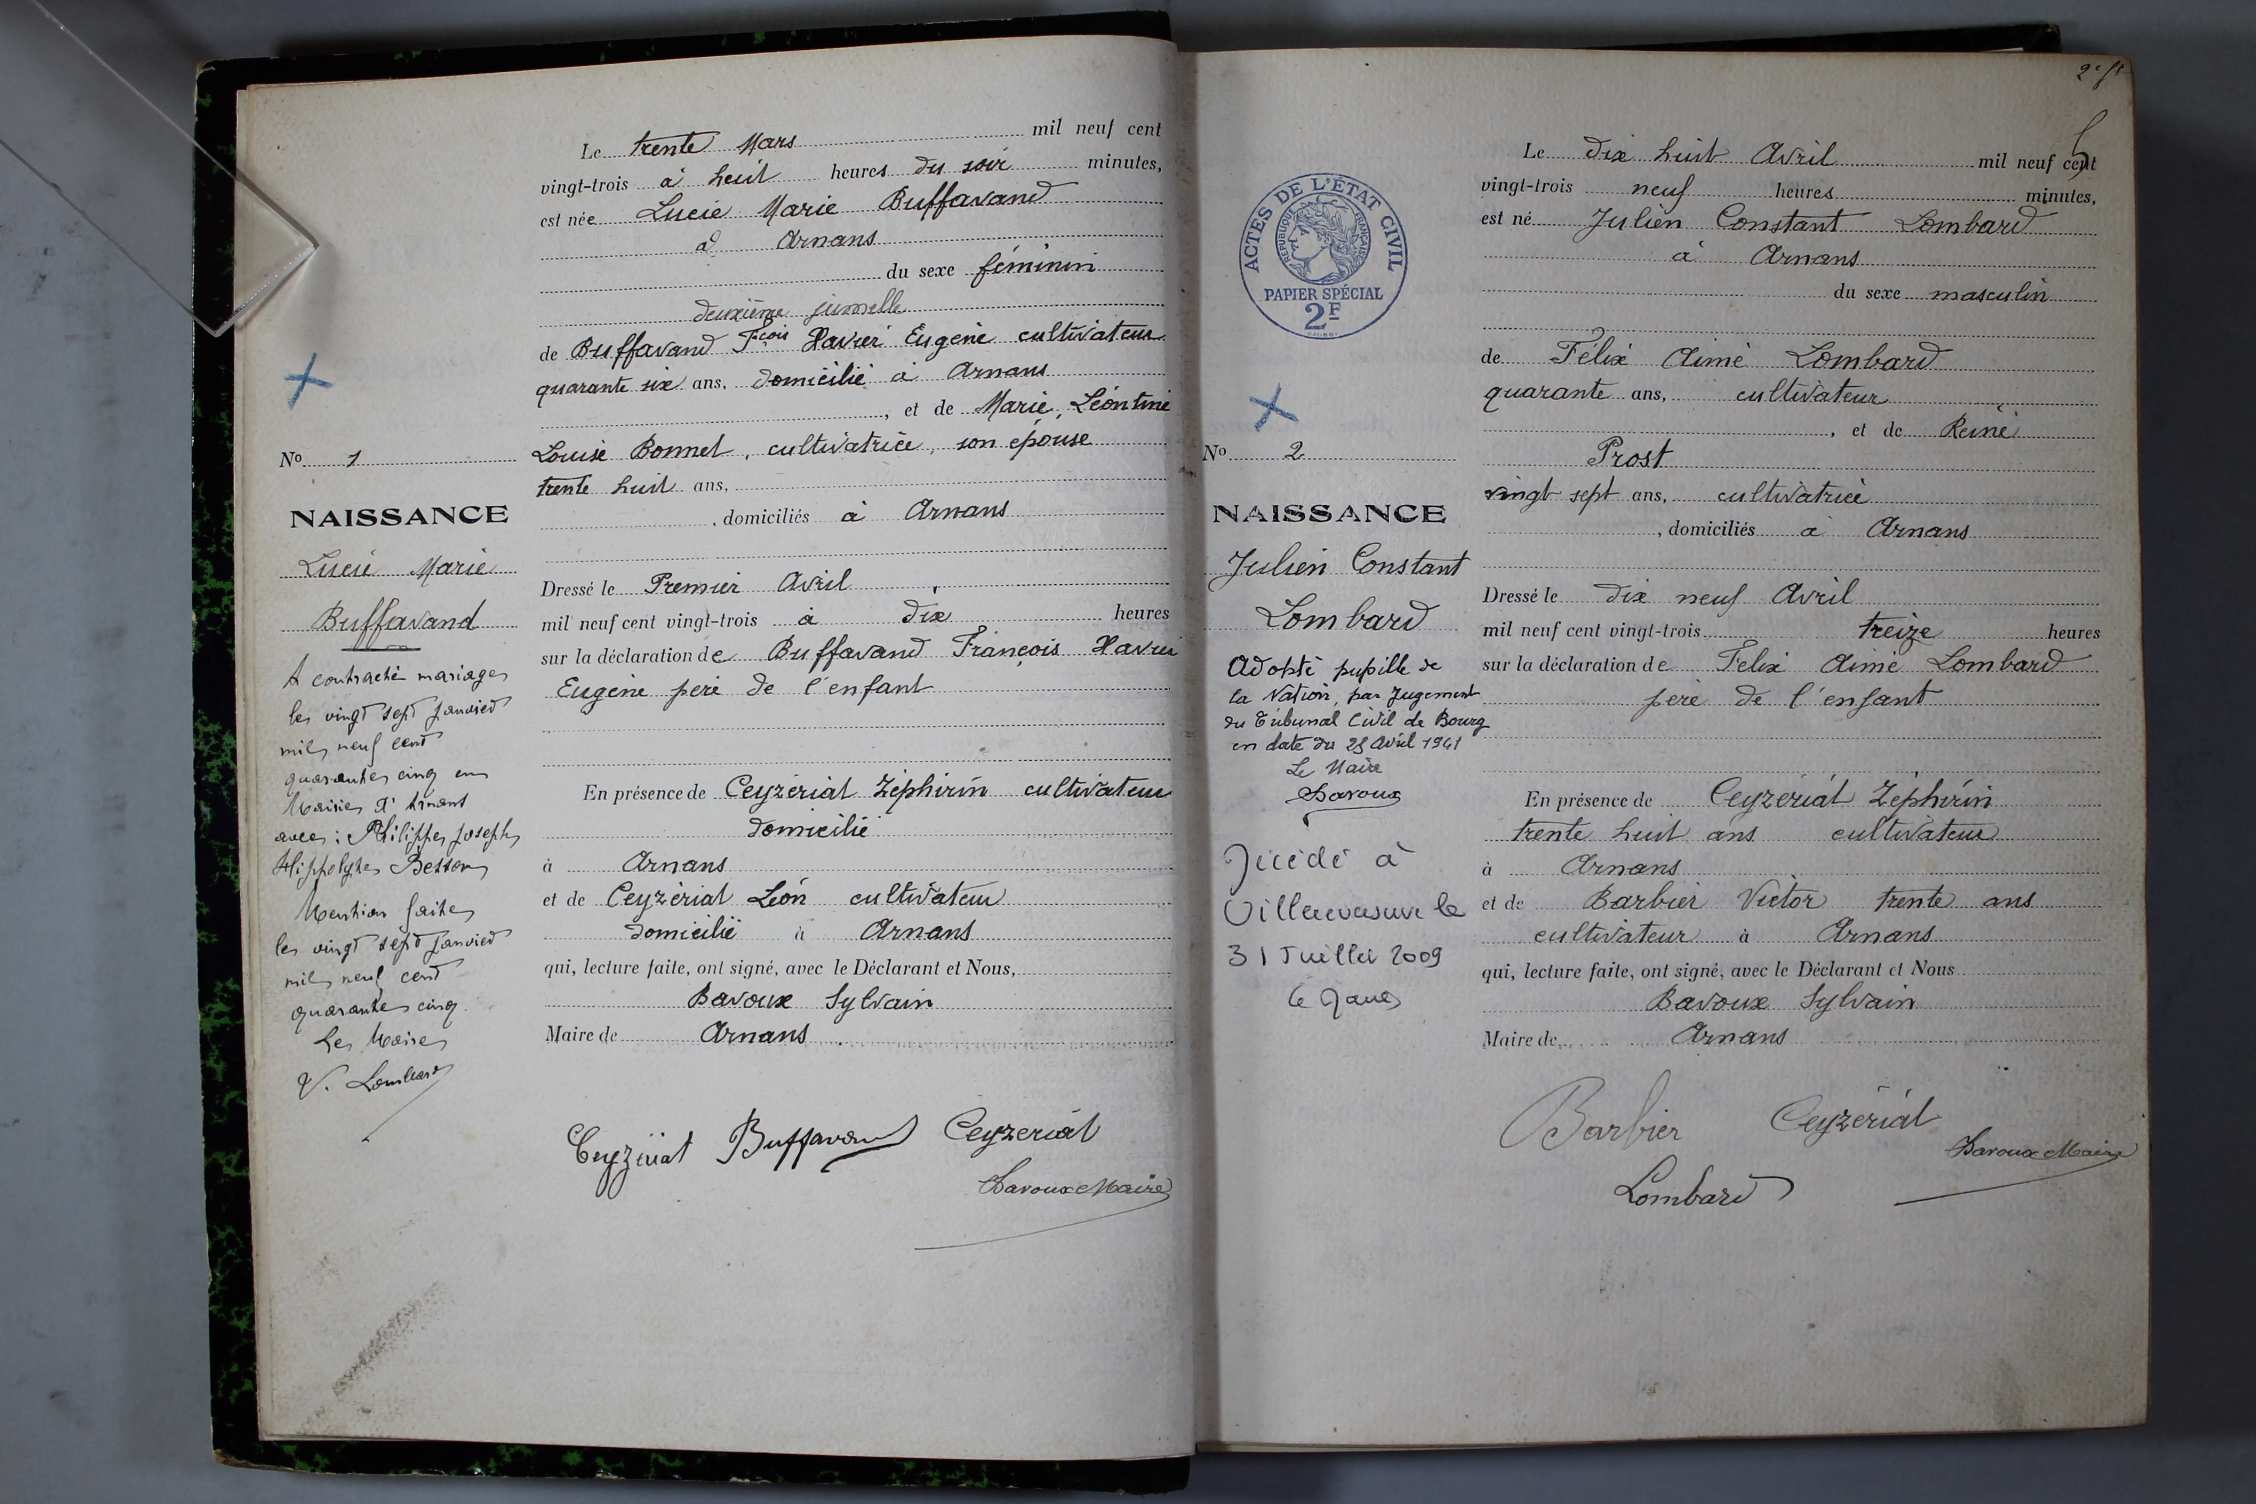 Le trente Mars mil neuf cent
vingt-trois à huit heures du soir minutes,
est née Lucie Marie Buffavand
à Arnans
du sexe féminin
deuxième jumelle
de Buffavand Fçois Xavier Eugène cultivateur
quarante six ans, domicilié à Arnans
, et de Marie, Léontine
No 1
Louise Bonnet, cultivatrice, son épouse
trente huit ans,
NAISSANCE
, domiciliés à Arnans
Lucie Marie
Buffavand
Dressé le Premier Avril
mil neuf cent vingt-trois à dix heures
sur la déclaration de Buffavand François Xavier
Eugène père de l'enfant
A contracté mariage
le vingt sept janvier
mil neuf cent
quarante cinq en
Mairie d'Arnans
avec : Philippe Joseph
Hippolyte Besson
Mention faite
le vingt sept janvier
mil neuf cent
quarante cinq.
Le Maire
V. Lombard
En présence de Ceyzériat Zéphirin cultivateur
domicilié
à Arnans
et de Ceyzériat Léon cultivateur
domicilié à Arnans
qui, lecture faite, ont signé, avec le Déclarant et Nous,
Bavoux Sylvain
Maire de Arnans
Ceyzériat Buffavand Ceyzeriat
Bavoux Maire
5
ACTES DE L'ÉTAT CIVIL
RÉPUBLIQUE FRANÇAISE
PAPIER SPÉCIAL
2F
Le dix huit Avril mil neuf cent
vingt-trois neuf heures minutes,
est né Julien Constant Lombard
à Arnans
du sexe masculin
de Félix Aimé Lombard
quarante ans, cultivateur
, et de Reine
No 2
Prost
vingt sept ans, cultivatrice
NAISSANCE
, domiciliés à Arnans
Julien Constant
Lombard
Dressé le dix neuf Avril
mil neuf cent vingt-trois treize heures
sur la déclaration de Felix Aimé Lombard
père de l'enfant
Adopté pupille de
la Nation, par Jugement
du Tribunal Civil de Bourg
en date du 25 Avril 1941
Le Maire
Bavoux
Décédé à
Villereversure le
31 Juillet 2009
En présence de Ceyzériat Zéphirin
trente huit ans cultivateur
à Arnans
et de Barbier Victor trente ans
cultivateur à Arnans
qui, lecture faite, ont signé, avec le Déclarant et Nous
Bavoux Sylvain
Maire de Arnans
Barbier Ceyzériat
Bavoux Maire
Lombard